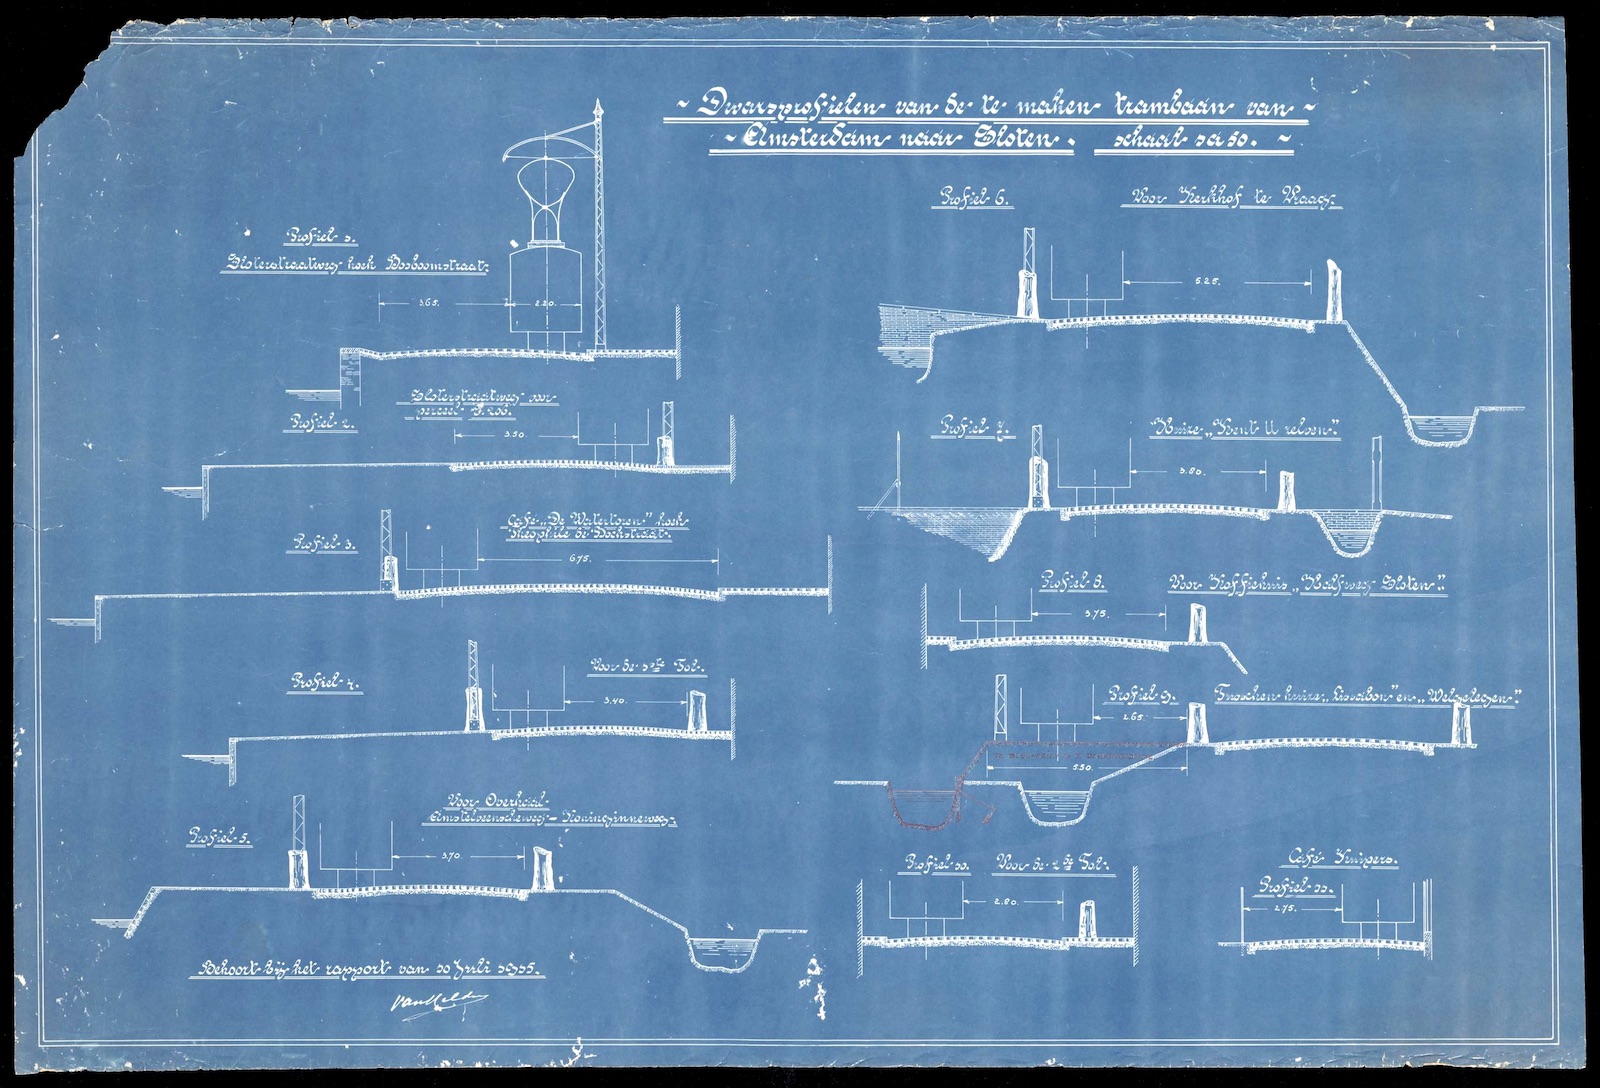 ~ Dwarsprofielen van de te maken trambaan van ~
~ Amsterdam naar Sloten. schaal 1 à 50. ~
Profiel 1.
Sloterstraatweg hoek Bosboomstraat.
3.65. 2.20.
Sloterstraatweg voor
perceel S. 206.
Profiel 2.
3.50.
Café „De Watertoren" hoek
Theophile de Bockstraat.
Profiel 3.
6.75.
Profiel 4.
Voor de 1ste Tol.
3.40.
Voor Overhaal
Amstelveenscheweg - Koninginneweg.
Profiel 5.
3.70
Behoort bij het rapport van 10 Juli 1911.
van Gelder
Profiel 6. Voor Kerkhof te Vraag.
5.25.
Profiel 7. Huize „Kent U zelven".
3.80.
Profiel 8. Voor Koffiehuis „Halfweg Sloten".
3.75.
Profiel 9. Tusschen huize „Lissabon" en „Welgelegen".
2.65.
5.50.
Profiel 10. Voor de 2de Tol.
2.80.
Café Kuipers.
Profiel 11.
2.75.